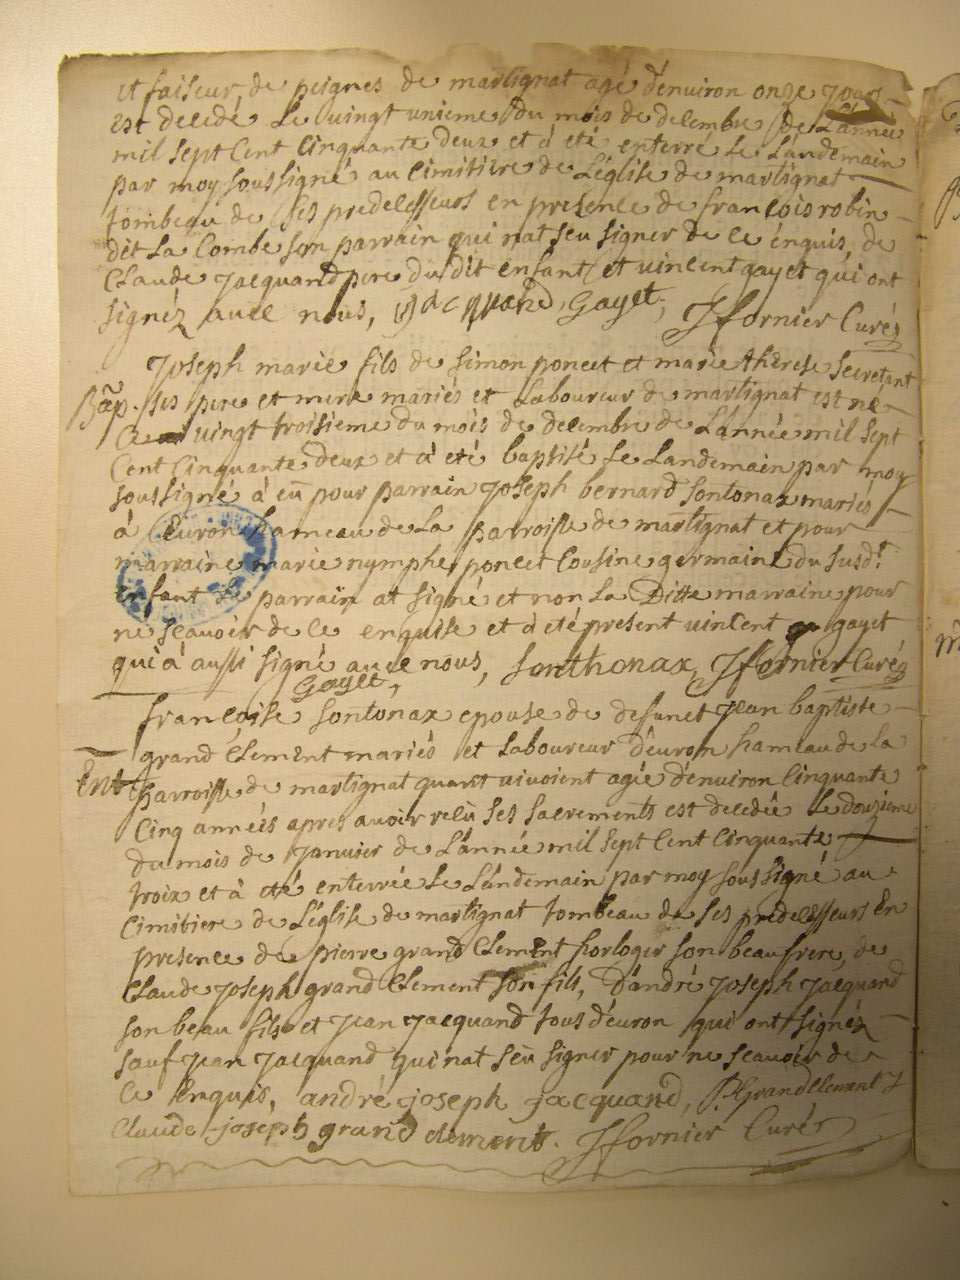 et faiseur de peignes de martignat agé denviron onze jours
est decedé Le vingt unieme du mois de decembre de Lannee
mil sept Cent Cinquante deux et à été enterré Le Landemain
par moy soussigné au Cimitiere de Léglise de martignat
tombeau de ses predecesseurs en presence de francois robin
dit La Combe son parrain qui nat seu signer de ce énquis, de
Claude Jacquand pere du dit enfant et vincent gayet qui ont
signéz avec nous, Jacquand, Gayet, Jffornier Curéz
Joseph marie fils de simon poncet et marie therese secretant
Bâp. ses pere et mere mariés et Laboureur de martignat est né
Ce vingt troisieme du mois de decembre de Lannée mil sept
Cent Cinquante deux et à été baptisé Le Landemain par moy
soussigné à eü pour parrain Joseph bernard sontonax mariés
à Euron hameau de La parroisse de martignat et pour
marraine marie nymphe poncet Cousine germaine du susd.t
enfant Le parrain at signé et non La Ditte marraine pour
ne scavoir de ce enquise et à été present vincent gayet
qui à aussi signé avec nous, Sonthonax, Jffornier Curéz
Gayet,
francoise sontonax epouse de defunct Jean baptiste
grand Clement mariés et Laboureur déuron hameau de La
Ent parroisse de martignat quant vivoient agée denviron Cinquante
Cinq années apres avoir reçü ses sacrements est decedée Le douzieme
du mois de Janvier de Lannée mil sept Cent Cinquante
troix et à été enterrée Le Landemain par moy soussigné au
Cimitiere de Léglise de martignat tombeau de ses predecesseurs En
presence de pierre grand Clement horloger son beaufrere, de
Claude Joseph grand Clement son fils, dandré Joseph Jacquand
son beau fils et Jean Jacquand tous déuron qui ont signéz
sauf Jean Jacquand qui nat seü signer pour ne scavoir de
Ce Enquis, andré joseph jacquand, P. GrandClement
Claude joseph grand clement. Jffornier Curéz